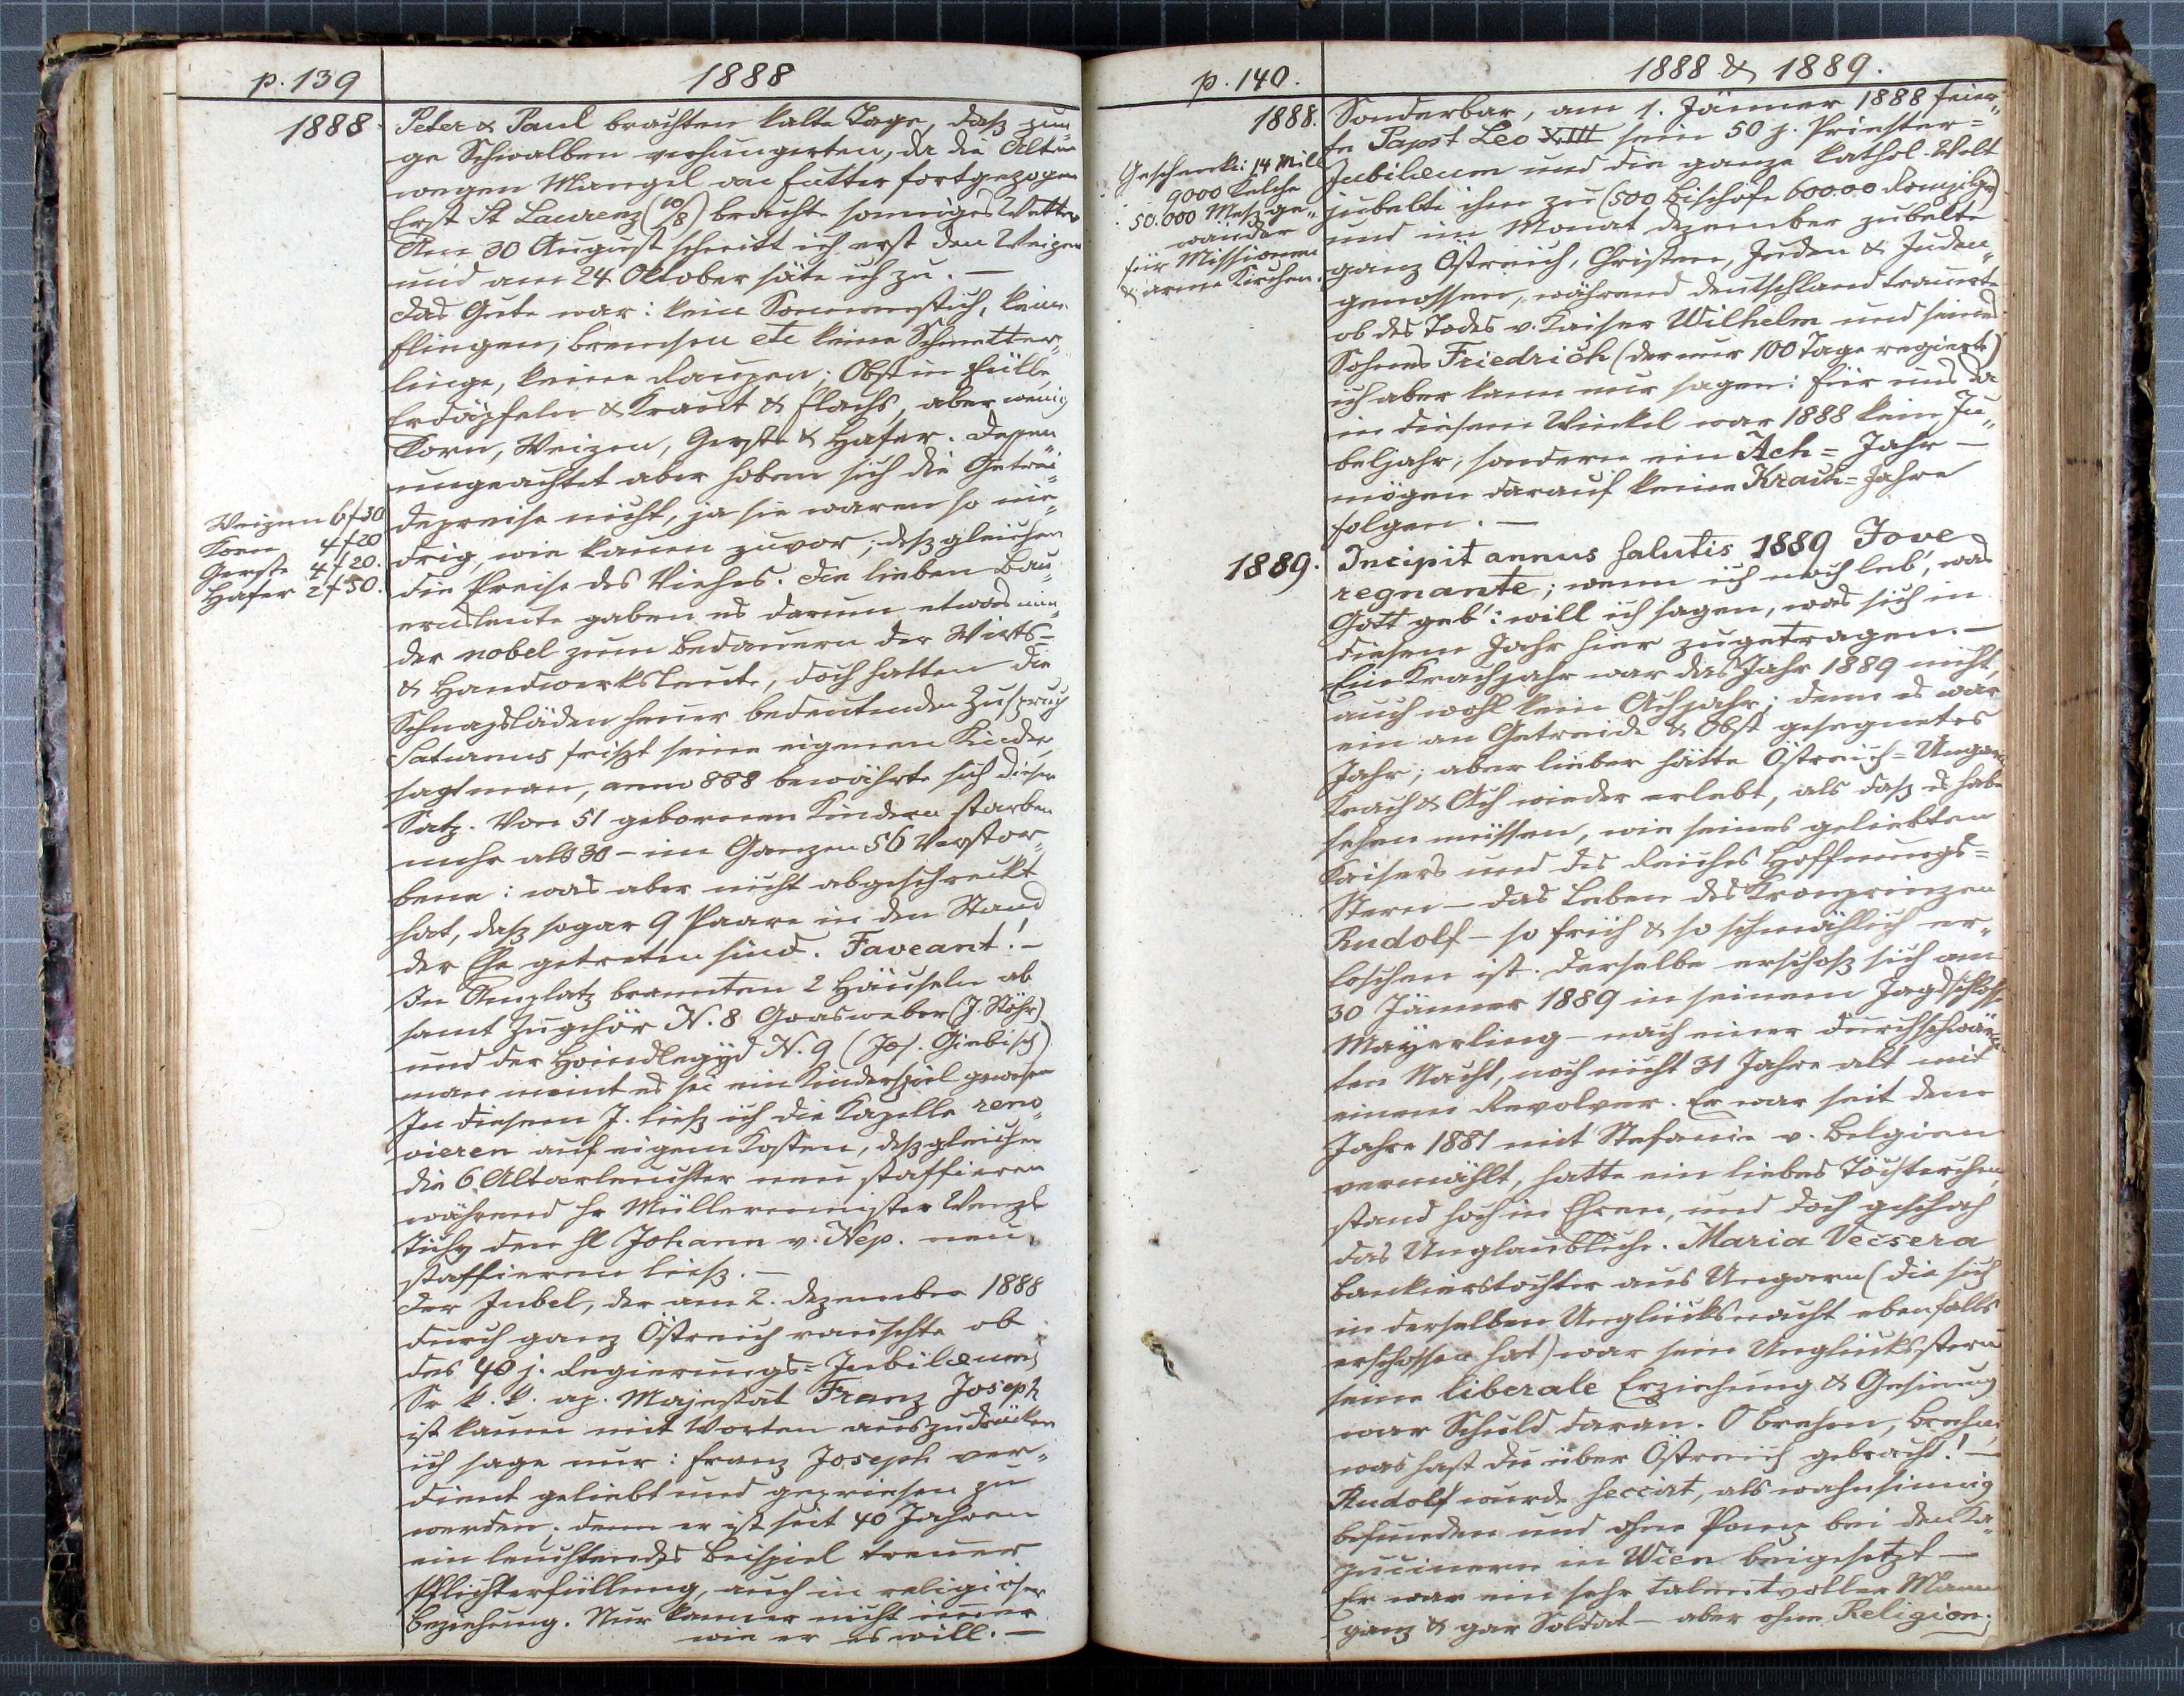 p. 139
1888
1888.
Peter & Paul brachten kalte Tage, daß jun„
ge Schwalben verhungerten, da die Alten
wegen Mangel an Futter fortgezogen
Erst St Laurenz (10/8) brachte sonniges Wetter
Am 30 August schnitt ich erst den Weizen
und am 24 Oktober säte ich zu. —
Das Gute war: kein Sonnenstich, keine
Fliegen, Bremsen etc keine Schmetter„
linge, keine Raupen; Obst in Fülle,
Erdäpfeln & Kraut & Flachs, aber wenig
Korn, Weizen, Gerste & Hafer. Dessen
ungeachtet aber hoben sich die Getrei„
depreise nicht, ja sie waren so nie„
drig, wie kaum zuvor; deßgleichen
die Preise des Viehes. Die lieben Bau„
ersleute gaben es darum etwas min„
der nobel zum Bedauern der Wirts-
& Handwerksleute, doch hatten die
Schnapsläden heuer bedeutenden Zuspruch
Saturnus frißt seine eigenen Kinder,
sagt man, anno 888 bewährte sich dieser
Satz. Von 51 geborenen Kindern starben
mehr als 30 – im Ganzen 56 Verstor„
bene: was aber nicht abgeschreckt
hat, daß sogar 9 Paare in den Stand
der Ehe getreten sind. Faveant! —
In Amplatz brannten 2 Häuseln ab
samt Zugehör N. 8 Graasweber (J. Stöhr)
und der N. 9 (Jos. Giebisch)
man meint es sei ein Kinderspiel gewesen
In diesem J. ließ ich die Kapelle reno„
vieren auf eigene Kosten, deßgleichen
die 6 Altarleuchter neu staffieren
während Hr Müllermeister Wenzl
Tichy den hl Johann v. Nep. neu
staffieren ließ. —
Der Jubel, der am 2. Dezember 1888
durch ganz Östreich rauschte ob
des 40 j. Regierungs-Jubilæums
Sr k. k. ap. Majestät Franz Joseph
ist kaum mit Worten auszudrücken
ich sage nur: Franz Joseph ver„
dient geliebt und gepriesen zu
werden; denn er ist seit 40 Jahren
ein leuchtendes Beispiel treuer
Pflichterfüllung, auch in religiöser
Beziehung. Nur kann er nicht immer
wie er es will. —
Weizen 6f50
Korn 4f20
Gerste 4f20.
Hafer 2f50.
p. 140.
1888 & 1889.
1888.
Geschenke: 14 Mill
9000 Kelche
50.000 Meßge„
wänder
für Missionen
& arme Kirchen.
Sonderbar, am 1. Jänner 1888 feier„
te Papst Leo XIII sein 50 j. Priester=
Jubilæum und die ganze kathol. Welt
jubelte ihm zu (500 Bischöfe 60000 Rompilger)
und im Monat Dezember jubelte
ganz Östreich, Christen, Juden & Juden„
genossen, während Deutschland trauerte
ob des Todes v. Kaiser Wilhelm und seines
Sohnes Friedrich (der nur 100 Tage regierte)
ich aber kann nur sagen: für uns da
in diesem Winkel war 1888 kein Ju„
beljahr, sondern ein Ach= Jahr —
mögen darauf keine Krach=Jahre
folgen. —
1889.
Incipit annus salutis 1889 Jove
regnante; wenn ich noch leb', was
Gott geb': will ich sagen, was sich in
diesem Jahr hier zugetragen. —
Ein Krachjahr war das Jahr 1889 nicht,
auch wohl kein Achjahr; denn es war
ein an Getreide & Obst gesegnetes
Jahr; aber lieber hätte Östreich=Ungarn
Krach & Ach wieder erlebt, als daß es habe
sehen müssen, wie seines geliebten
Kaisers und des Reiches Hoffnungs=
Stern – das Leben des Kronprinzen
Rudolf – so früh & so schmählich er„
loschen ist. Derselbe erschoß sich am
30 Jänner 1889 in seinem Jagdschloße
Mayerling – nach einer durchschwärm„
ten Nacht, noch nicht 31 Jahre alt mit
einem Revolver. Er war seit dem
Jahre 1881 mit Stefanie v. Belgien
vermählt, hatte ein liebes Töchterchen,
stand hoch in Ehren, und doch geschah
das Unglaubliche. Maria Večsera
Bankierstochter aus Ungarn (die sich
in derselben Unglücksnacht ebenfalls
erschossen hat) war sein Unglücksstern
seine liberale Erziehung & Gesinnung
war Schuld daran. O Brehm, Brehm,
was hast du über Östreich gebracht! —
Rudolf wurde seccirt, als wahnsinnig
befunden und ohne Pomp bei den Ka„
pucinern in Wien beigesetzt —
Er war ein sehr talentvoller Mann
ganz & gar Soldat – aber ohne Religion.